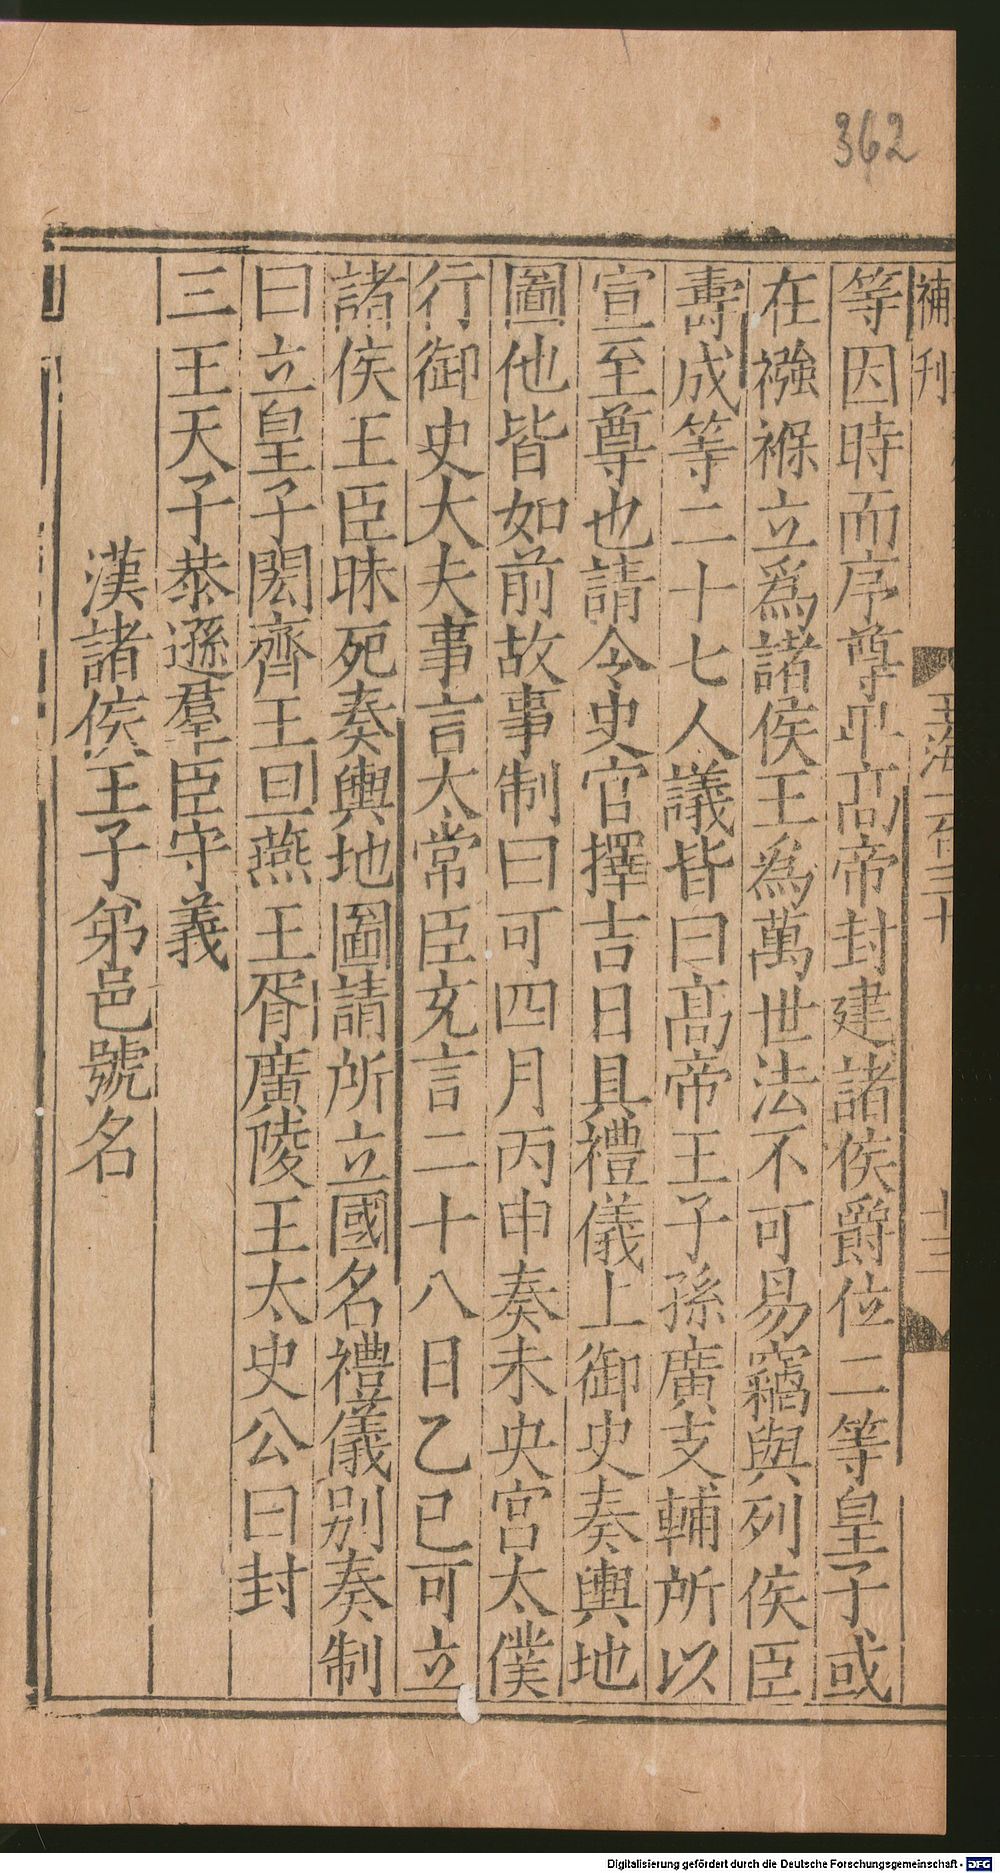 362
補刊
玉海一百三十
十三
等因時而序尊卑高帝封建諸侯爵位二等皇子或
在襁褓立爲諸侯王爲萬世法不可易竊與列侯臣
壽成等二十七人議皆曰高帝王子孫廣支輔所以
宣至尊也請令史官擇吉日具禮儀上御史奏輿地
圖他皆如前故事制曰可四月丙申奏未央宮太僕
行御史大夫事言太常臣充言二十八日乙巳可立
諸侯王臣昧死奏輿地圖請所立國名禮儀别奏制
曰立皇子閎齊王旦燕王胥廣陵王太史公曰封
三王天子恭遜羣臣守義
漢諸侯王子弟邑號名
Digitalisierung gefördert durch die Deutsche Forschungsgemeinschaft - DFG